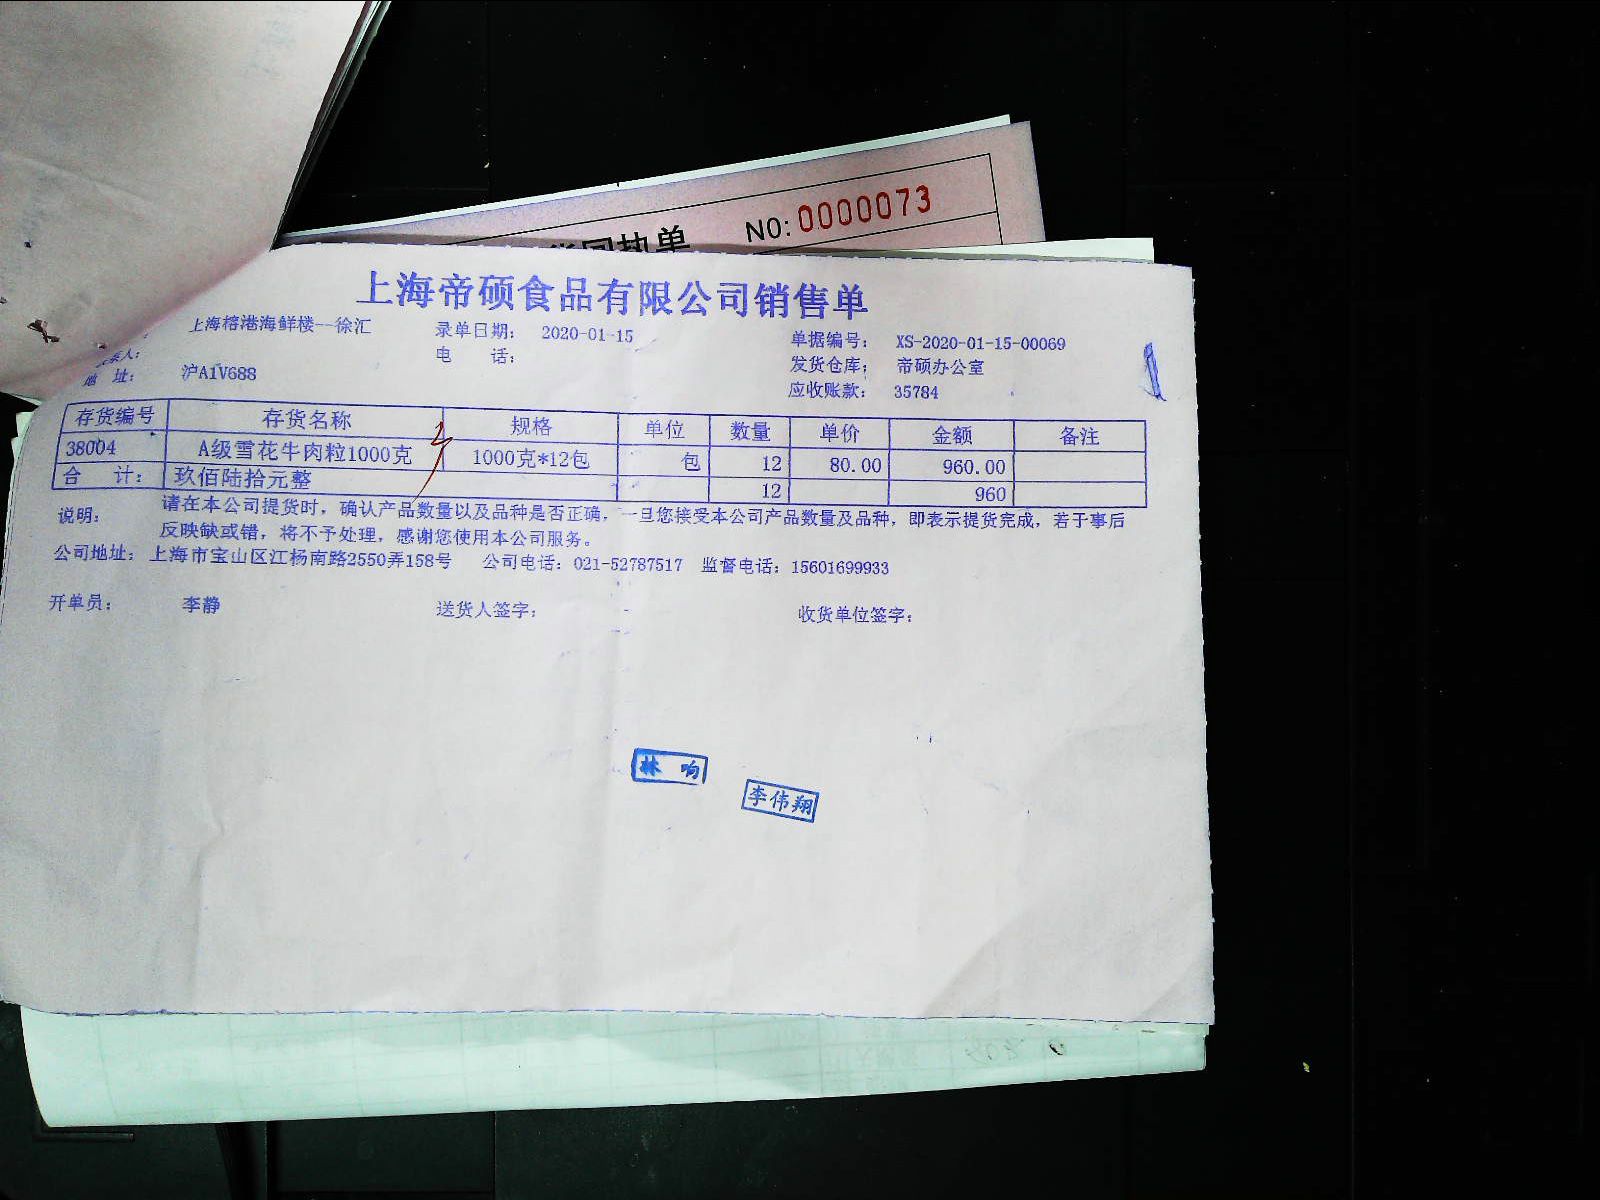 回执单 NO:0000073
上海帝硕食品有限公司销售单
上海榕港海鲜楼--徐汇 录单日期: 2020-01-15 单据编号: XS-2020-01-15-00069
系人: 电 话: 发货仓库: 帝硕办公室
地 址: 沪A1V688 应收账款: 35784
存货编号 存货名称 规格 单位 数量 单价 金额 备注
38004 A级雪花牛肉粒1000克 1000克*12包 包 12 80.00 960.00
合 计: 玖佰陆拾元整 12 960
说明: 请在本公司提货时，确认产品数量以及品种是否正确，一旦您接受本公司产品数量及品种，即表示提货完成，若于事后
反映缺或错，将不予处理，感谢您使用本公司服务。
公司地址: 上海市宝山区江杨南路2550弄158号 公司电话: 021-52787517 监督电话: 15601699933
开单员: 李静 送货人签字: 收货单位签字:
林 响
李伟翔